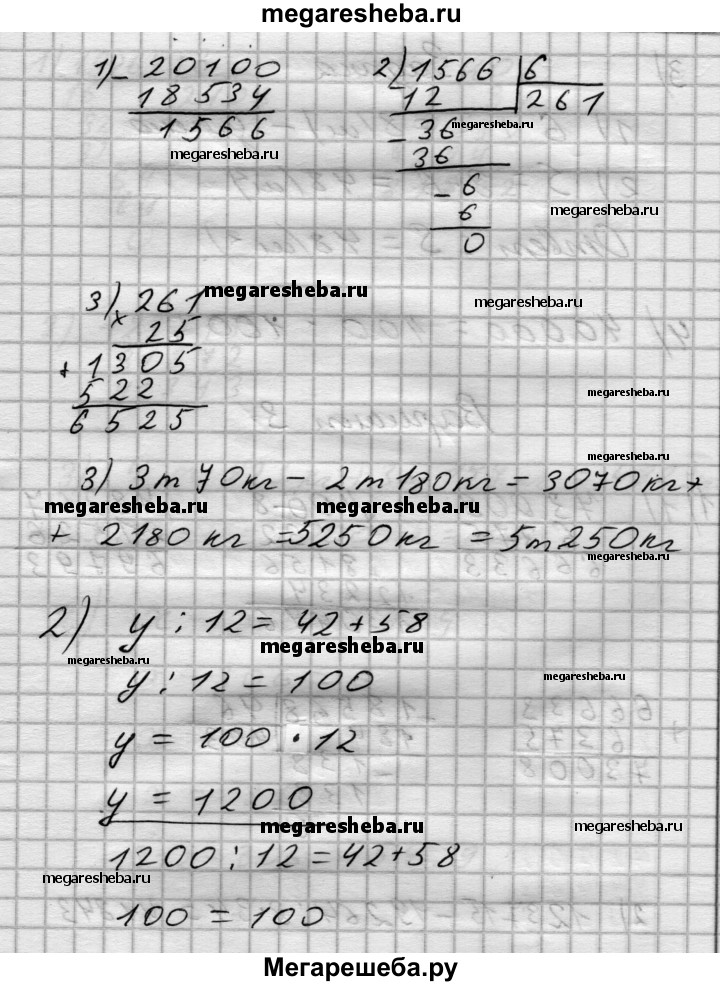 megaresheba.ru
1) - 20100
18534
1566
megaresheba.ru
2) 1566 | 6
12 | 261
megaresheba.ru
- 36
36
- 6
6
megaresheba.ru
0
3) 261 megaresheba.ru
megaresheba.ru
× 25
+ 1305
522
6525
megaresheba.ru
megaresheba.ru
3) 3т 70кг - 2т 180кг = 3070кг +
megaresheba.ru megaresheba.ru
+ 2180 кг = 5250кг = 5т 250кг
megaresheba.ru
2) y : 12 = 42 + 58
megaresheba.ru
megaresheba.ru
y : 12 = 100
megaresheba.ru
y = 100 · 12
y = 1200
megaresheba.ru
megaresheba.ru
1200 : 12 = 42 + 58
megaresheba.ru
100 = 100
Мегарешеба.ру